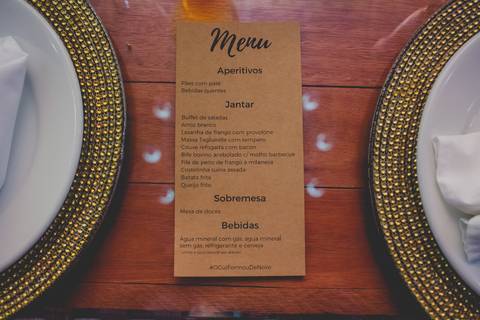 Menu
Aperitivos
Pães com patê
Bebidas quentes
Jantar
Buffet de saladas
Arroz branco
Lasanha de frango com provolone
Massa Tagliarelle com tempero
Couve refogada com bacon
Bife bovino arebolado c/ molho barbecue
Filé de peito de frango à milanesa
Costelinha suína assada
Batata frita
Queijo frito
Sobremesa
Mesa de doces
Bebidas
Água mineral com gás, água mineral
sem gás, refrigerante e cerveja